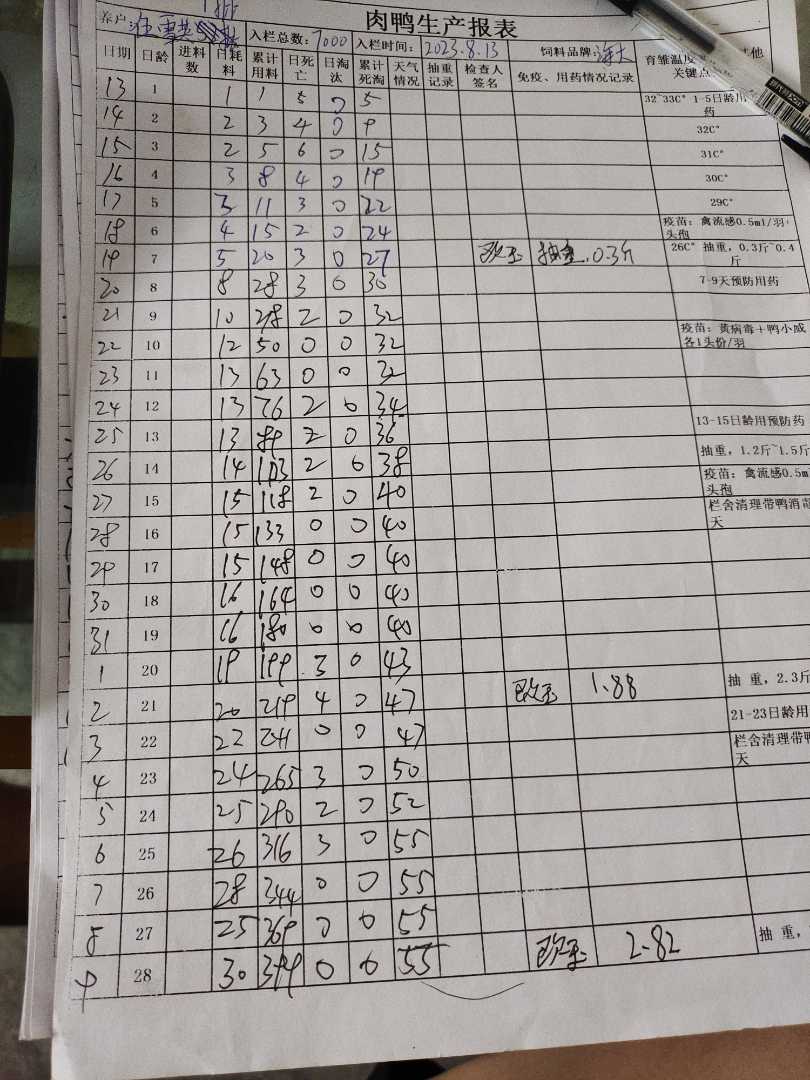 肉鸭生产报表
养户 入栏总数: 7000 入栏时间: 2023.8.13 饲料品牌: 海大 育雏温度 其他关键点
日期 日龄 进料数 日耗料 累计用料 日死亡 日淘汰 累计死淘 天气情况 抽重记录 检查人签名 免疫、用药情况记录
13 1 1 1 5 0 5 32~33C° 1-5日龄用药
14 2 2 3 4 0 9 32C°
15 3 2 5 6 0 15 31C°
16 4 3 8 4 0 19 30C°
17 5 3 11 3 0 22 29C°
18 6 4 15 2 0 24 疫苗: 禽流感0.5ml/羽+头孢
19 7 5 20 3 0 27 抽重.0.3斤 26C° 抽重, 0.3斤~0.4斤
20 8 8 28 3 0 30 7-9天预防用药
21 9 10 38 2 0 32
22 10 12 50 0 0 32 疫苗: 黄病毒+鸭小威各1头份/羽
23 11 13 63 0 0 32
24 12 13 76 2 0 34
25 13 13 89 2 0 36 13-15日龄用预防药
26 14 14 103 2 0 38 抽重, 1.2斤~1.5斤
27 15 15 118 2 0 40 疫苗: 禽流感0.5m 头孢
28 16 15 133 0 0 40 栏舍清理带鸭消毒 天
29 17 15 148 0 0 40
30 18 16 164 0 0 40
31 19 16 180 0 0 40
1 20 19 199 3 0 43
2 21 20 219 4 0 47 1.88 抽 重, 2.3斤
3 22 22 241 0 0 47 21-23日龄用
4 23 24 265 3 0 50 栏舍清理带鸭 天
5 24 25 290 2 0 52
6 25 26 316 3 0 55
7 26 28 344 0 0 55
8 27 25 369 0 0 55
9 28 30 399 0 0 55 2.82 抽 重,